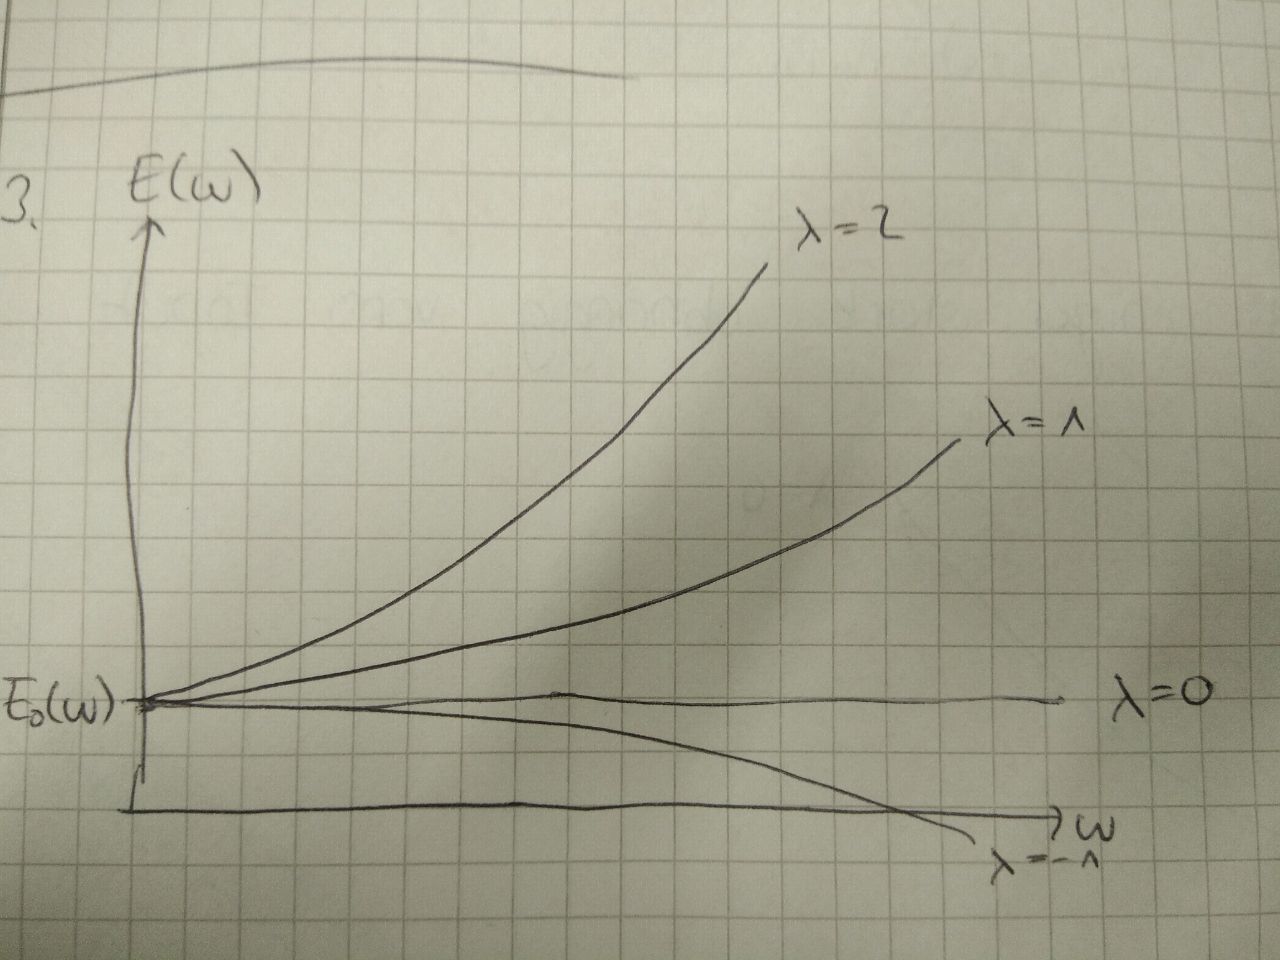 3.
E(ω)
λ = 2
λ = 1
E₀(ω)
λ = 0
ω
λ = -1